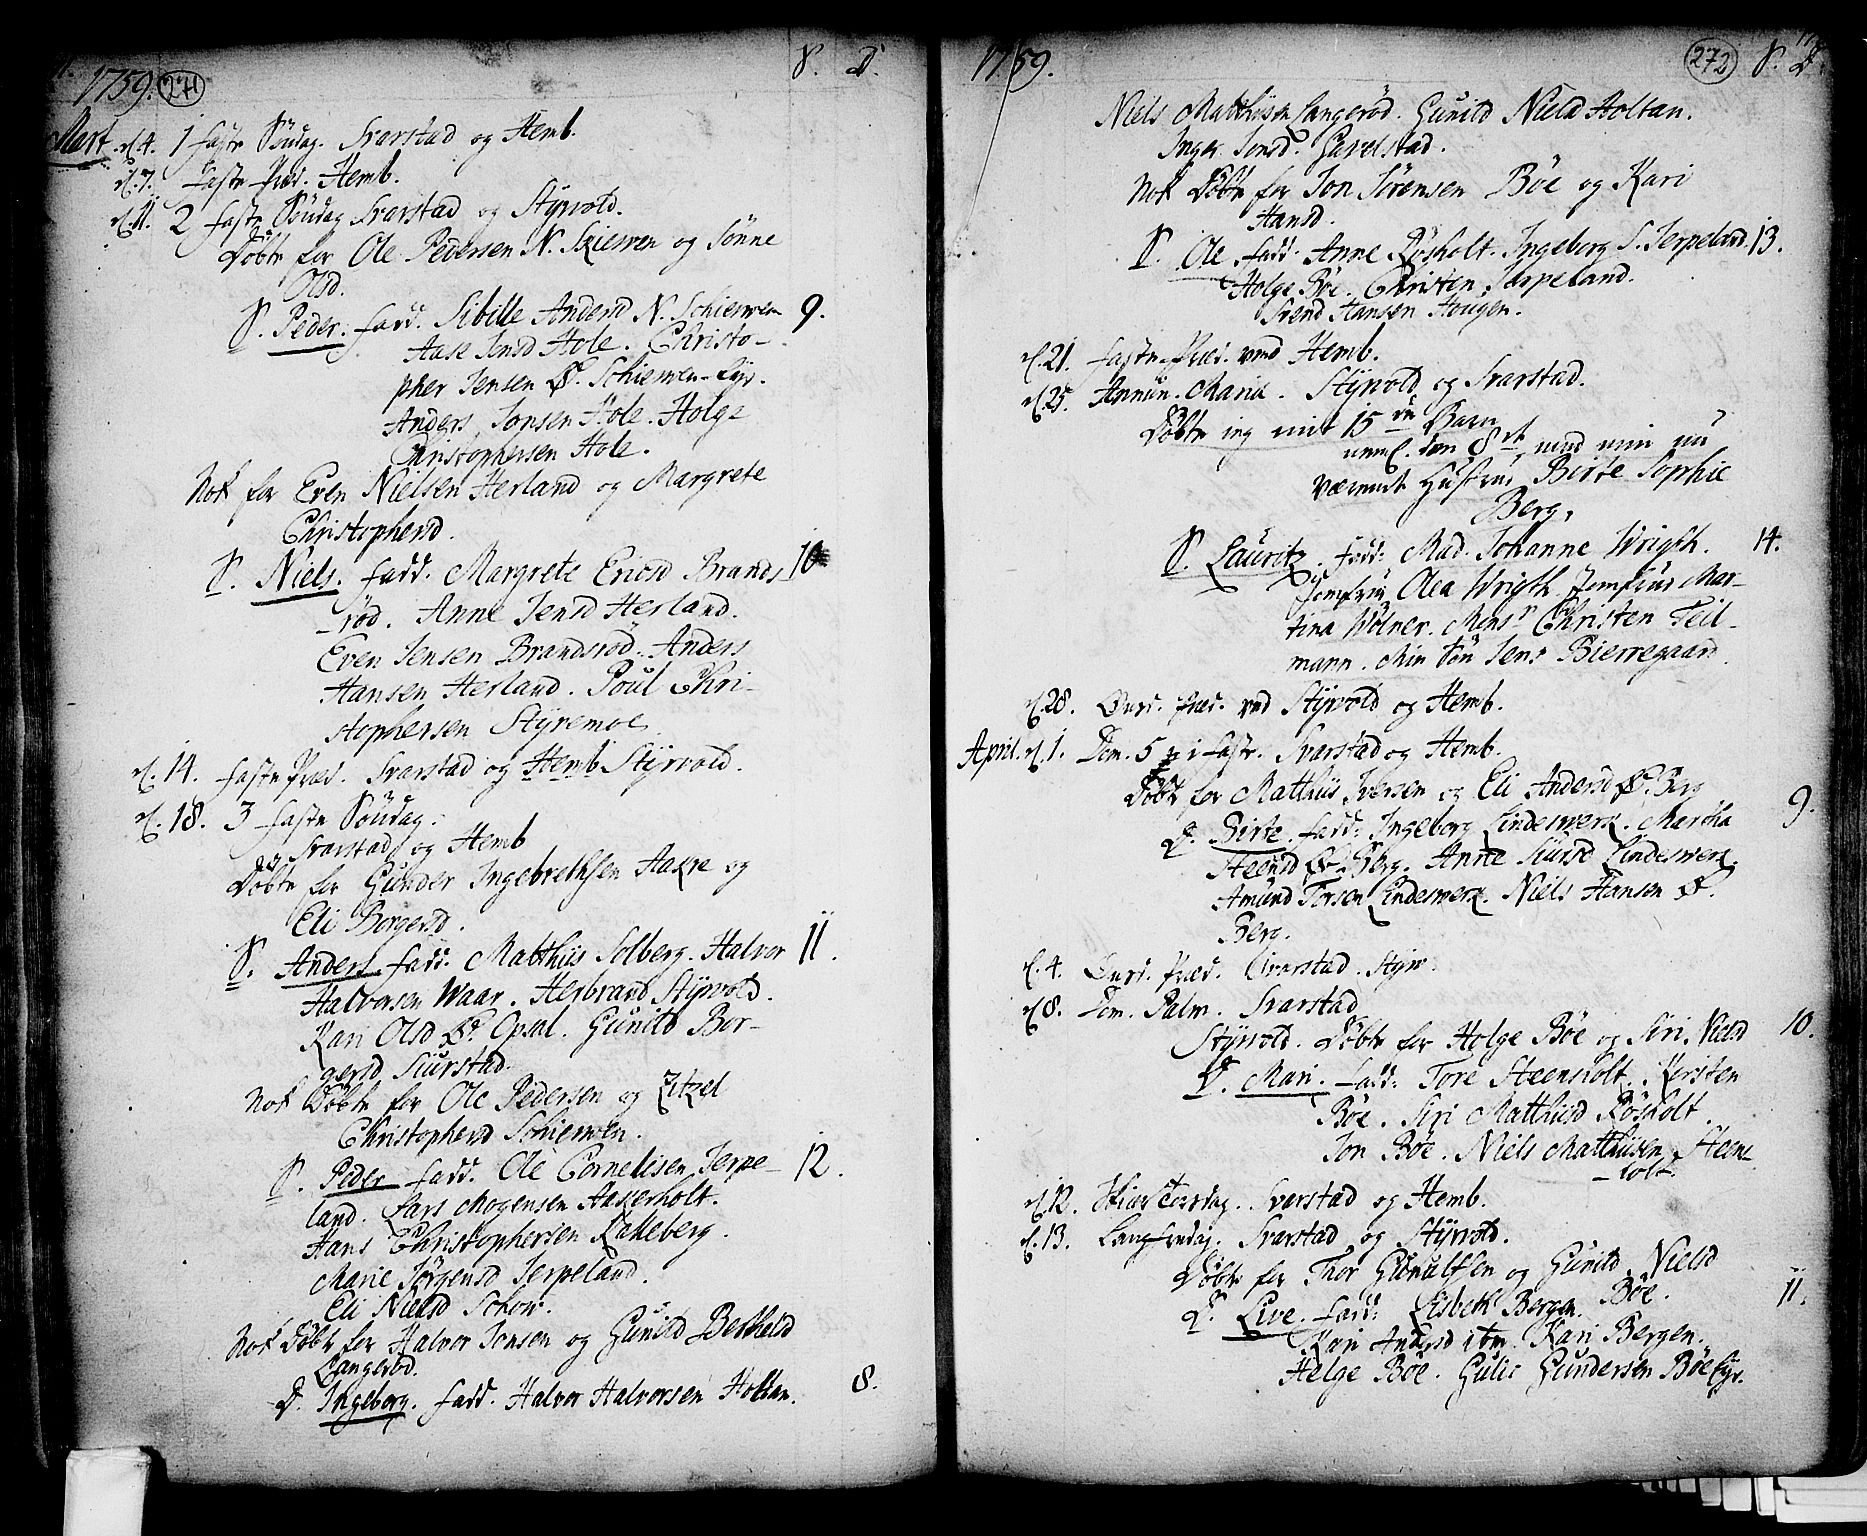 1759. 271 S. D.
Mart. d. 4. 1 faste Söndag. Svarstad og Hemb.
d. 7. faste Præd. Hemb.
d. 11. 2 faste Söndag Svarstad og Styrvold.
Döbte for Ole Pedersen N. Skierven og Sönne
Olsd.
S. Peder. fadd. Sibille Andersd N. Schierven 9.
Aase Jensd Hole. Christo-
pher Jensen Ø. Schierven-Eyr.
Anders Jonsen Hole. Holge
Christophersen Hole.
Nok for Even Nielsen Herland og Margrete
Christophersd.
S. Niels. fadd. Margrete Ericsd Brands 10
-röd. Anne Jensd Herland.
Even Jensen Brandsröd. Anders
Hansen Herland. Poul Chri-
stophersen Styremoe
d. 14. faste Præd. Svarstad og Hemb Styrvold.
d. 18. 3 faste Söndag.
Svarstad og Hemb
Döbte for Gunder Ingebrethsen Aakre og
Eli Borgersd.
S. Anders fadd. Matthiis Solberg. Halvor 11.
Halvorsen Waar. Herbrand Styrvold.
Kari Olsd Ø. Opsal. Gunild Bor-
gersd Siurstad.
Nok Döbte for Ole Pedersen og Zitzel
Christophersd Schierven.
S. Peder fadd. Ole Cornelisen Jerpe- 12.
land. Lars Mogensen Aakerholt.
Hans Christophersen Kakeberg.
Marie Jörgensd Jerpeland.
Eli Nielsd Schow.
Nok Döbte for Halvor Jonsen og Gunild Bertheld
Langeröd.
D. Ingeborg. fadd. Halvor Halvorsen Holtan. 8.
1759. 272 S. D.
Niels Matthiisen Langeröd. Gunild Nielsd Holtan.
Inger Jonsd. Gavelstad.
Nok Döbte for Jon Sörensen Böe og Kari
Hansd.
S. Ole. fadd. Anne Røsholt. Ingeborg S. Jerpeland. 13.
Holge Böe. Christen Jerpeland.
Svend Hansen Hougen.
d. 21. faste-Præd. ved Hemb.
d. 25. Annun. Mariæ. Styrvold og Svarstad.
Döbte ieg mit 15de Barn
neml. den 8de med min nu
værende Hustrue Birte Sophie
Berg,
S. Lauritz. fadd. Mad. Johanne Wrigth. 14.
Jomfrue Olea Wrigth. Jomfrue Mar-
tina Wölner. Monsr Christen Teil-
mann. Min Sön Jens Bierregaard.
d. 28. Onsd. Præd. ved Styrvold og Hemb.
April. d. 1. Dom. 5 i faste. Svarstad og Hemb.
Döbte for Matthiis Iversen og Eli Andersd Ø. Berg
D. Birte. fadd. Ingeborg Lindeswerk. Martha 9.
Steensd Ø. Berg. Anne Siursd Lindeswerk.
Amund Torsen Lindeswerk. Niels Hansen Ø.
Berg.
d. 4. Onsd. Præd. Svarstad. Styrv.
d. 8. Dom. Palm. Svarstad
Styrvold. Döbte for Holge Böe og Siri Nielsd 10.
D. Mari. fadd: Tore Steensholt. Kirsten
Böe. Siri Matthiisd Røsholt.
Jon Böe. Niels Matthiisen Steens
-holt.
d. 12. Skiær Torsdag. Svarstad og Hemb.
d. 13. Langfredag. Svarstad og Styrvold.
Döbte for Thor Gunulfsen og Gunild Nielsd
Böe.
D. Live. fadd: Lisbeth Bergen. 11.
Kari Andersd ibm. Kari Bergen.
Helge Böe. Gulic Gundersen Böe Eyr.